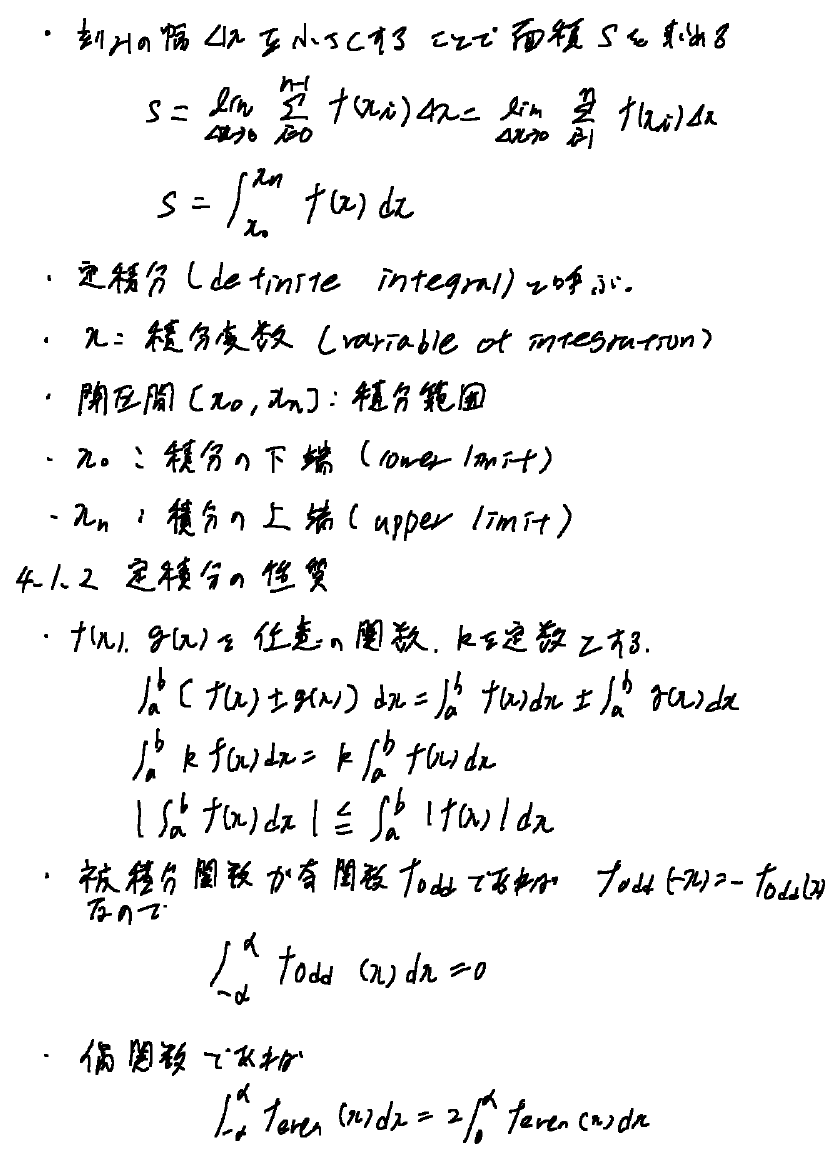 ・刻みの幅 Δx を小さくすることで面積 S を求める
S = lim_{Δx→0} Σ_{i=0}^{n-1} f(x_i)Δx = lim_{Δx→0} Σ_{i=1}^{n} f(x_i)Δx
S = ∫_{x_0}^{x_n} f(x) dx
・定積分 (definite integral) と呼ぶ.
・x = 積分変数 (variable of integration)
・閉区間 [x_0, x_n] : 積分範囲
・x_0 : 積分の下端 (lower limit)
・x_n : 積分の上端 (upper limit)
4.1.2 定積分の性質
・f(x), g(x) を任意の関数, k を定数とする.
∫_a^b (f(x) ± g(x)) dx = ∫_a^b f(x)dx ± ∫_a^b g(x)dx
∫_a^b k f(x)dx = k ∫_a^b f(x)dx
|∫_a^b f(x)dx| ≦ ∫_a^b |f(x)| dx
・被積分関数が奇関数 f_odd であれば f_odd(-x) = -f_odd(x)
なので
∫_{-α}^{α} f_odd (x) dx = 0
・偶関数であれば
∫_{-α}^{α} f_even (x)dx = 2∫_0^α f_even (x)dx